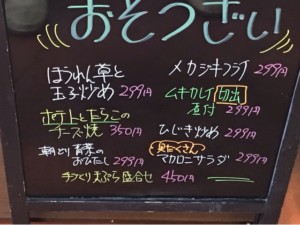 おそうざい
ほうれん草と
玉子炒め 299円
ポテトとたらこの
チーズ焼 350円
朝どり青菜の
おひたし 299円
手づくり天ぷら盛合せ 450円
メカジキフライ 299円
ムキカレイ 切出
煮付 299円
ひじき炒め 299円
具だくさん
マカロニサラダ 299円